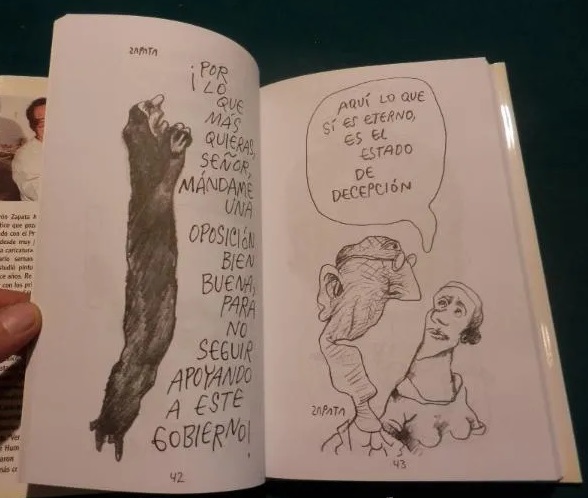 ZAPATA
¡POR
LO
QUE
MÁS
QUIERAS,
SEÑOR,
MÁNDAME
UNA
OPOSICIÓN
BIEN
BUENA,
PARA
NO
SEGUIR
APOYANDO
A ESTE
GOBIERNO!
42
AQUÍ LO QUE
SÍ ES ETERNO,
ES EL
ESTADO
DE
DECEPCIÓN
ZAPATA
43